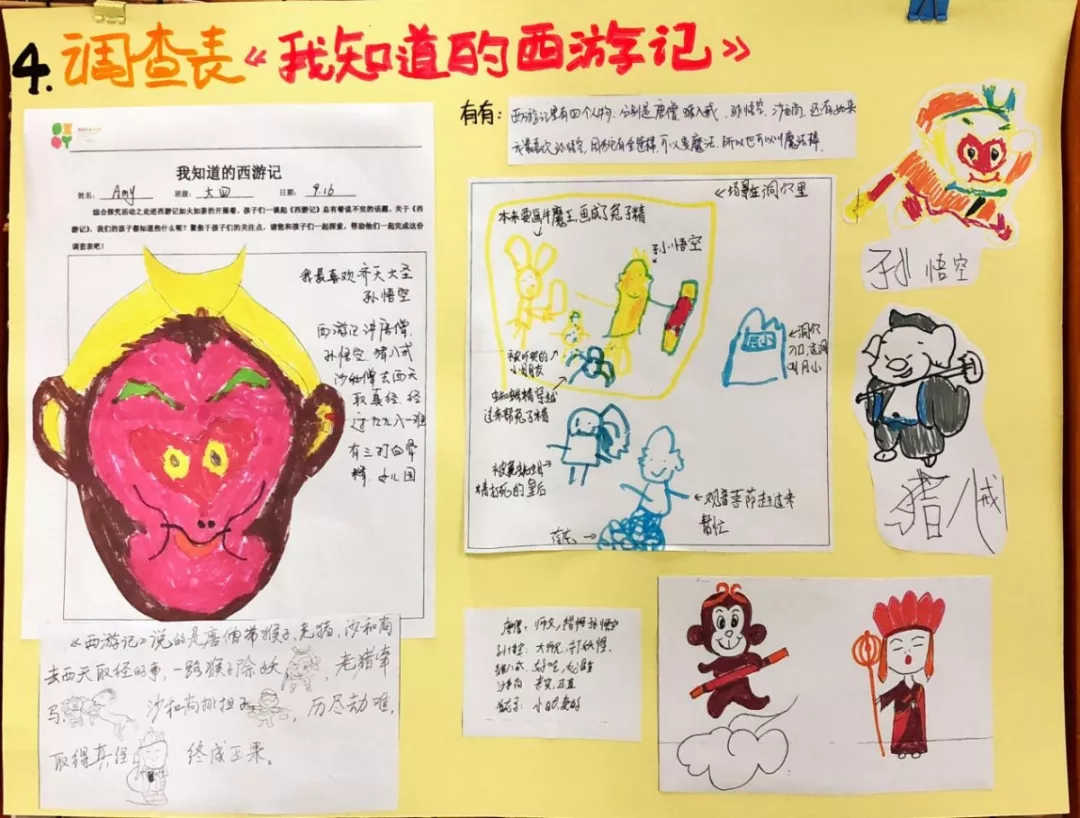 4. 调查表《我知道的西游记》
我知道的西游记
姓名: Amy 班级: 大四 日期: 9.16
综合探究活动之走进西游记如火如荼的开展着,孩子们一谈起《西游记》总有着说不完的话题,关于《西
游记》,我们的孩子都知道些什么呢?聚焦于孩子们的关注点,请您和孩子们一起探索,帮助他们一起完成这份
调查表吧!
我最喜欢齐天大圣
孙悟空
西游记讲唐僧,
孙悟空 猪八戒
沙和僧去西天
取真经 经
过九九八一难
有三打白骨
精 女儿国
《西游记》说的是唐僧带猴子,老猪,沙和尚
去西天取经的事,一路猴子除妖,老猪牵
马,沙和尚挑担子,历尽劫难,
取得真经 终成正果。
有有:
西游记里有四个人物:分别是唐僧、猪八戒、孙悟空、沙和尚,还有如来
我最喜欢孙悟空,因为他有金箍棒,可以变魔法,所以也可以叫魔法棒。
←场景在洞穴里
本来要画牛魔王,画成了兔子精
孙悟空
被吓哭的
小朋友
蜘蛛精穿越
过来帮兔子精
←洞穴
入口,这洞
叫月小
精打死的皇后
←观音菩萨赶过来
帮忙
→
唐僧:师父
孙悟空:大师兄,打妖怪.
猪八戒 好吃,
沙和尚 老实,正直
孙悟空
猪八戒